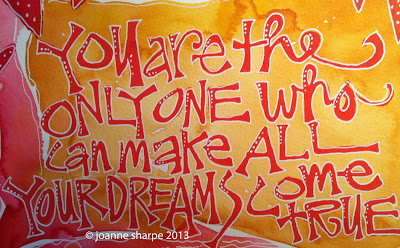 You are the
ONLY ONE who
can make ALL
YOUR DREAMS come
TRUE
© joanne sharpe 2013